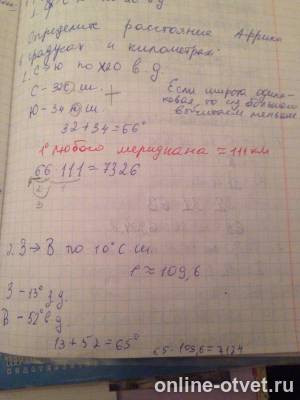 Определить расстояние Африки
в градусах и километрах
1. С Ю по Х20 в.д.
С - 32 с ш.
Ю - 34 ю ш.
Если широта одинаковая, то из большего вычитаем меньшее
32+34=66°
1° любого меридиана ≈ 111 км
66 111 = 7326
2. З → В по 10° С ш.
1° ≈ 109,6
З - 13° з д.
В - 52° в д.
13 + 52 = 65°
65 · 109,6 = 7124
online-otvet.ru